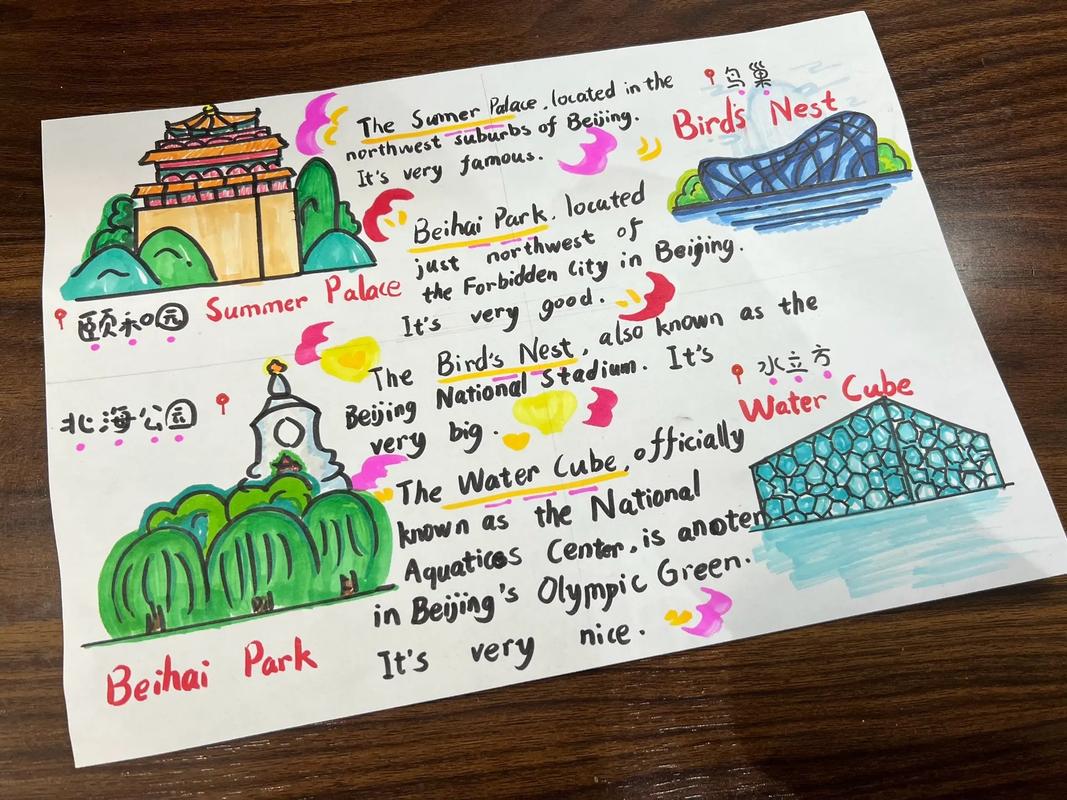 The Sumer Palace, located in the
northwest suburbs of Beijing.
It's very famous.
鸟巢
Bird's Nest
Summer Palace
颐和园
Beihai Park, located
just northwest of
the Forbidden City in Beijing.
It's very good.
北海公园
The Bird's Nest, also known as the
Beijing National Stadium. It's
very big.
水立方
Water Cube
The Water Cube, officially
known as the National
Aquaticos Center, is anoter
in Beijing's Olympic Green.
It's very nice.
Beihai Park